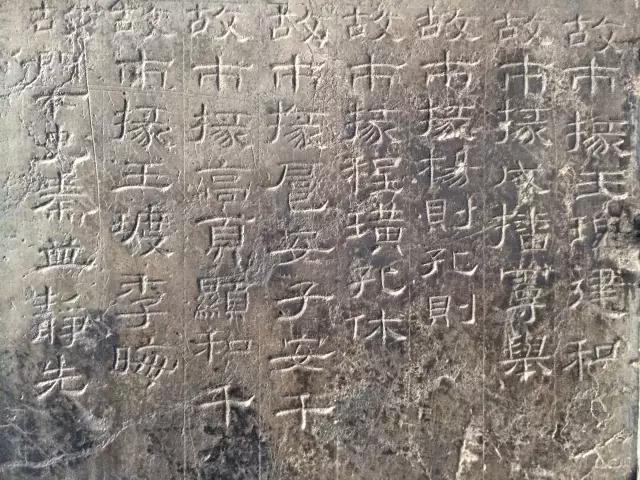 故市掾王理建和
故市掾成播曼舉
故市掾楊則孔則
故市掾程璜孔休
故市掾扈安子安千
故市掾高頁顯和千
故市掾王玻季晦
故門下史秦並靜先